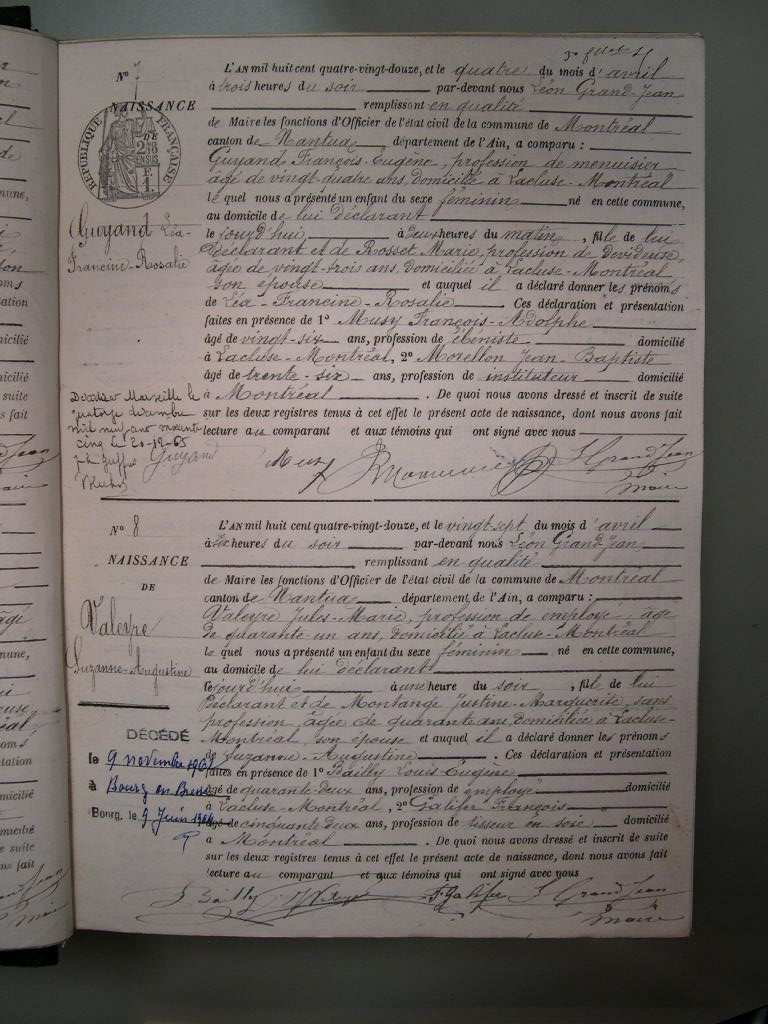 N° 7
L'AN mil huit cent quatre-vingt-douze, et le quatre du mois d'avril
à trois heures du soir par-devant nous Léon Grand-Jean
NAISSANCE remplissant en qualité
de Maire les fonctions d'Officier de l'état civil de la commune de Montréal
canton de Nantua, département de l'Ain, a comparu :
RÉPUBLIQUE FRANÇAISE
Guyand François-Eugène, profession de menuisier
âgé de vingt-quatre ans, domicilié à Lacluse-Montréal
lequel nous a présenté un enfant du sexe féminin né en cette commune,
au domicile de lui déclarant
Guyand Léa-
Francine-Rosalie
le jourd'hui à heures du matin, fille de lui
Déclarant et de Rosset Marie, profession de dévideuse,
âgée de vingt-trois ans, domiciliée à Lacluse-Montréal
son épouse et auquel il a déclaré donner les prénoms
de Léa-Francine-Rosalie Ces déclaration et présentation
faites en présence de 1° Musy François-Adolphe
âgé de vingt-six ans, profession de ébéniste domicilié
à Lacluse-Montréal, 2° Moretton Jean-Baptiste
âgé de trente-six ans, profession de instituteur domicilié
à Montréal. De quoi nous avons dressé et inscrit de suite
sur les deux registres tenus à cet effet le présent acte de naissance, dont nous avons fait
lecture au comparant et aux témoins qui ont signé avec nous
Décédée Marseille le
quatorze décembre
mil neuf cent soixante
cinq le 20-12-65
Guyand Musy L Grand Jean
maire
N° 8
L'AN mil huit cent quatre-vingt-douze, et le vingt-sept du mois d'avril
à six heures du soir par-devant nous Léon Grand-Jean
NAISSANCE remplissant en qualité
DE
de Maire les fonctions d'Officier de l'état civil de la commune de Montréal
canton de Nantua, département de l'Ain, a comparu :
Valeyre
Suzanne-Augustine
Valeyre Jules-Marie, profession de employé, âgé
de quarante un ans, domicilié à Lacluse-Montréal
lequel nous a présenté un enfant du sexe féminin né en cette commune,
au domicile de lui déclarant
le jourd'hui à une heure du soir, fille de lui
Déclarant et de Montange Justine-Marguerite, sans
profession, âgée de quarante ans, domiciliée à Lacluse-
Montréal, son épouse et auquel il a déclaré donner les prénoms
de Suzanne-Augustine. Ces déclaration et présentation
faites en présence de 1° Bailly Louis Eugène
âgé de quarante-deux ans, profession de employé domicilié
à Lacluse-Montréal, 2° Galifer François
âgé de cinquante deux ans, profession de tisseur en soie domicilié
à Montréal. De quoi nous avons dressé et inscrit de suite
sur les deux registres tenus à cet effet le présent acte de naissance, dont nous avons fait
lecture au comparant et aux témoins qui ont signé avec nous
DÉCÉDÉ
le 9 novembre
à Bourg en Bresse
Bourg, le 9 Juin
Bailly L Grand Jean
maire